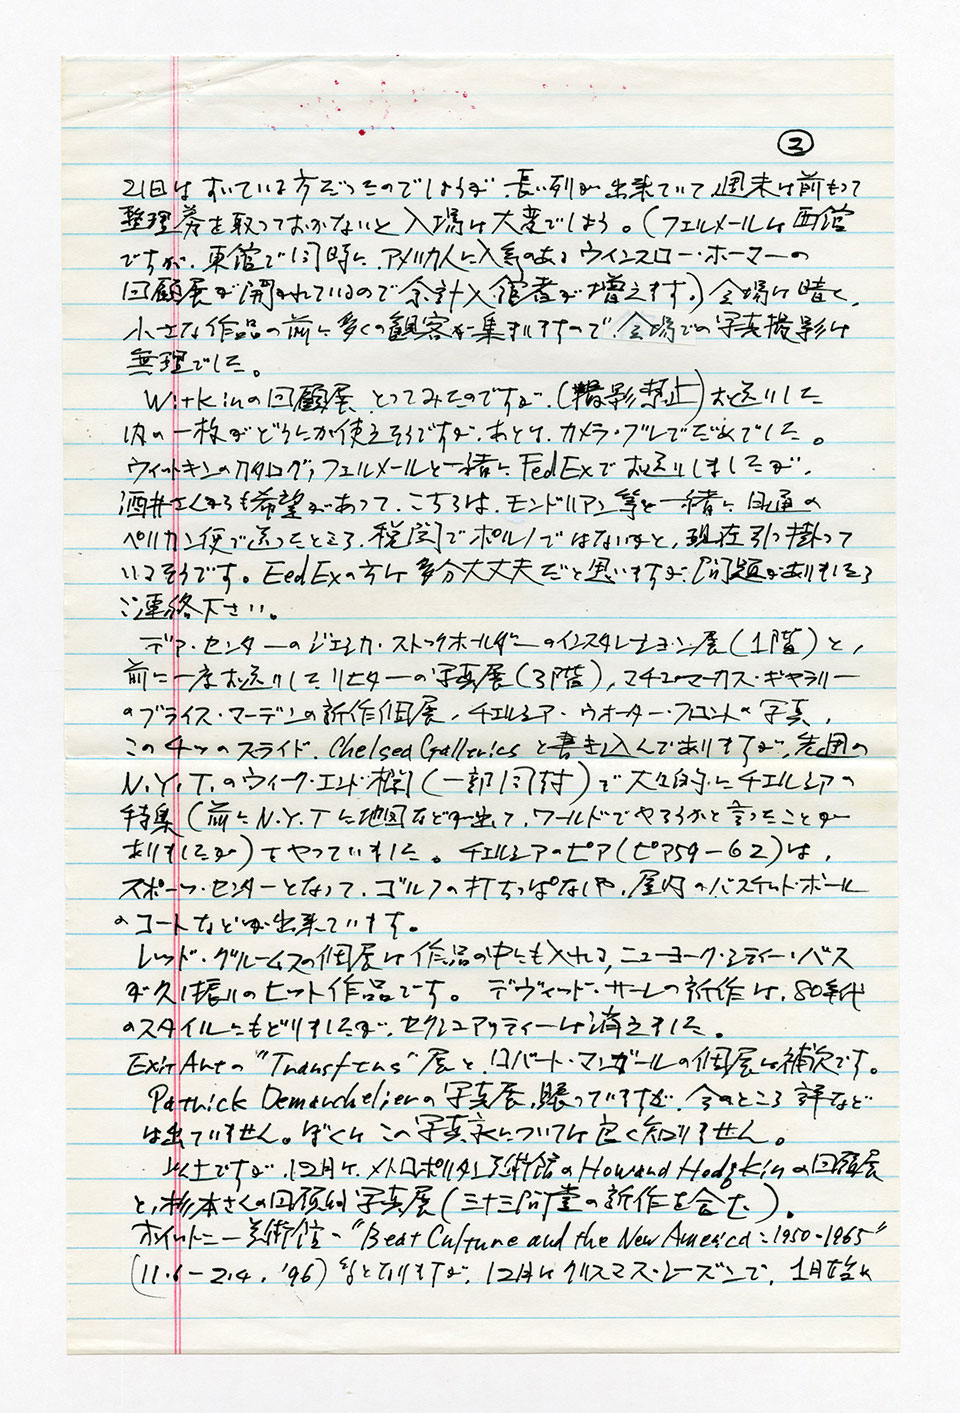 ②
21日はすいている方だったのでしょうが、長い列が出来ていて、週末は前もって
整理券を取っておかないと入場は大変でしょう。(フェルメールは西館
ですが、東館で同時に、アメリカ人に人気のあるウインスロー・ホーマーの
回顧展が開かれているので余計入館者が増えます。)会場は暗く、
小さな作品の前に多くの観客が集まりますので、会場での写真撮影は
無理でした。
Witkinの回顧展、とってみたのですが、(撮影禁止)お送りした
内の一枚がどうにか使えそうですが、あとは、カメラ・ブレでだめでした。
ウィットキンのカタログ、フェルメールと一緒にFedExでお送りしましたが、
酒井さんからも希望があって、こちらは、モンドリアン等と一緒に日通の
ペリカン便で送ったところ、税関でポルノではないかと、現在引っ掛って
いるそうです。EedExの方は多分大丈夫だと思いますが、問題がありましたら
ご連絡下さい。
デア・センターのジェシカ・ストックホルダーのインスタレーション展(1階)と、
前に一度お送りしたリヒターの写真展(3階)、マチュー・マーカス・ギャラリー
のブライス・マーデンの新作個展、チェルシア・ウォーター・フロントの写真、
この4つのスライド、Chelsea Galleriesと書き込んでありますが、先週の
N.Y.T.のウィーク・エンド欄(一部同封)で大々的にチェルシアの
特集(前にN.Y.Tに地図などが出て、ワールドでやろうかと言ったことが
ありましたが)をやっていました。チェルシアのピア(ピア59-62)は、
スポーツ・センターとなって、ゴルフの打ちっぱなしや、屋内のバスケット・ボール
のコートなどが出来ています。
レッド・グルームスの個展は作品の中にも入れる、ニューヨーク・シティー・バス
が久し振りのヒット作品です。デヴィッド・サーレの新作は、80年代
のスタイルにもどりましたが、セクシュアリティーは消えました。
Exit Artの"Transfens"展と、ロバート・マンゴールの個展は補欠です。
Patrick Demarchelierの写真展、賑っていますが、今のところ評など
は出ていません。ぼくはこの写真家については良く知りません。
以上ですが、12月は、メトロポリタン美術館のHoward Hodgkinの回顧展
と、杉本さんの回顧的写真展(三十三間堂の新作を含む)。
ホイットニー美術館の"Beat Culture and the New America: 1950-1965"
(11.6-2.4.'96)等となりますが、12月はクリスマス・シーズンで、1月始めに